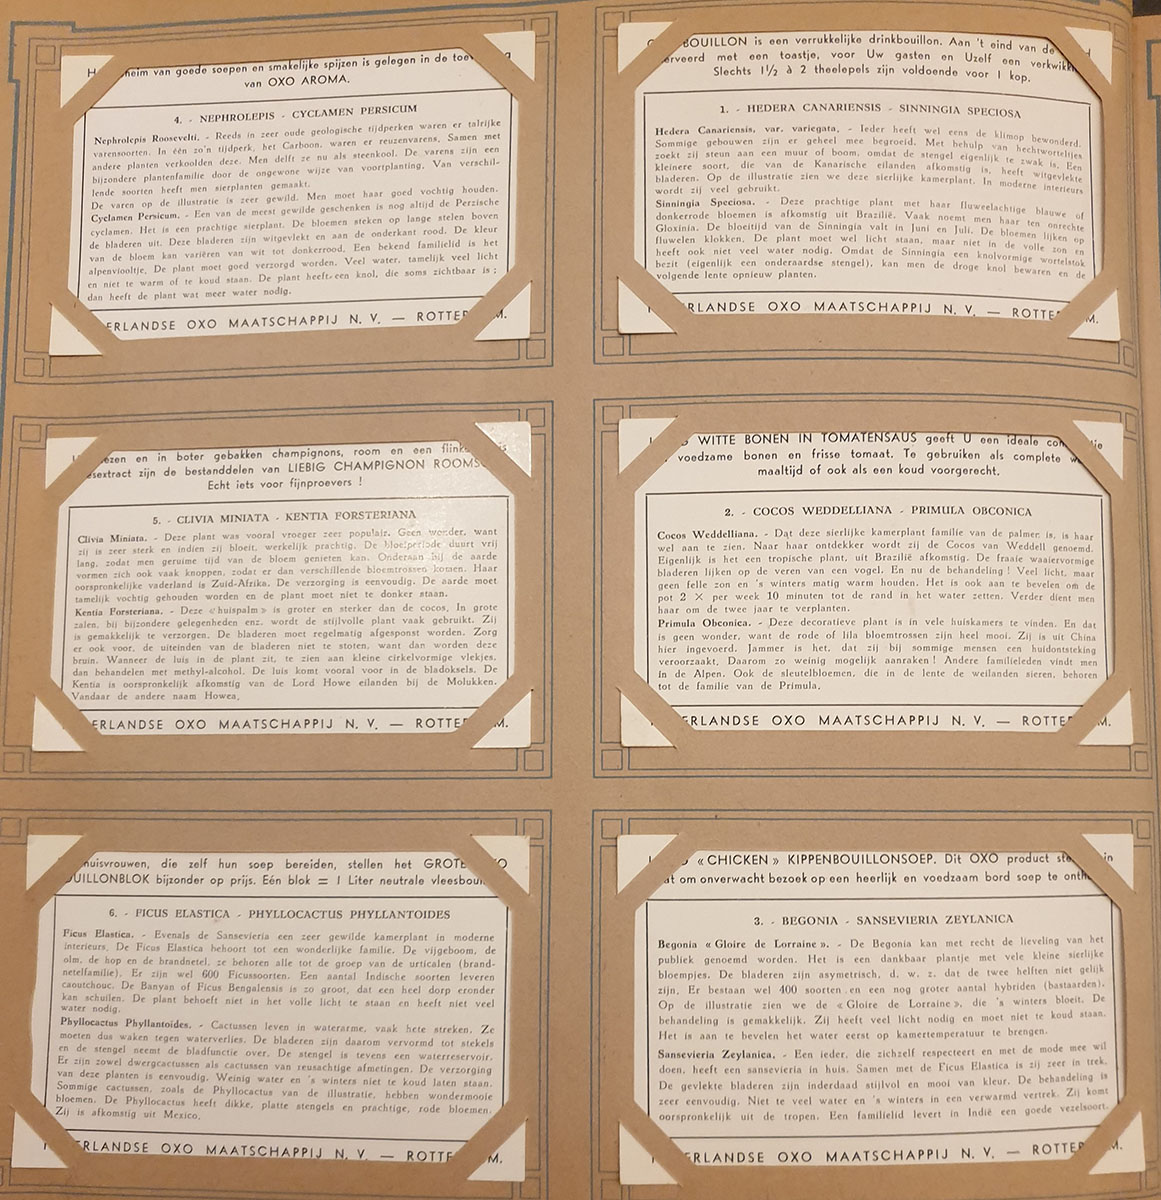 heim van goede soepen en smakelijke spijzen is gelegen in de
van OXO AROMA.
4. - NEPHROLEPIS - CYCLAMEN PERSICUM
Nephrolepis Roosevelti. - Reeds in zeer oude geologische tijdperken waren er talrijke
varensoorten. In één zo'n tijdperk, het Carboon, waren er reuzenvarens, Samen met
andere planten verkoolden deze. Men delft ze nu als steenkool. De varens zijn een
bijzondere plantenfamilie door de ongewone wijze van voortplanting. Van verschil-
lende soorten heeft men sierplanten gemaakt.
De varen op de illustratie is zeer gewild. Men moet haar goed vochtig houden.
Cyclamen Persicum. - Een van de meest gewilde geschenken is nog altijd de Perzische
cyclamen. Het is een prachtige sierplant. De bloemen steken op lange stelen boven
de bladeren uit. Deze bladeren zijn witgevlekt en aan de onderkant rood. De kleur
van de bloem kan variëren van wit tot donkerrood. Een bekend familielid is het
alpenviooltje. De plant moet goed verzorgd worden. Veel water, tamelijk veel licht
en niet te warm of te koud staan. De plant heeft een knol, die soms zichtbaar is ;
dan heeft de plant wat meer water nodig.
ERLANDSE OXO MAATSCHAPPIJ N. V. — ROTTE M.
BOUILLON is een verrukkelijke drinkbouillon. Aan 't eind van de
erveerd met een toastje, voor Uw gasten en Uzelf een verkwikk
Slechts 1½ à 2 theelepels zijn voldoende voor 1 kop.
1. - HEDERA CANARIENSIS - SINNINGIA SPECIOSA
Hedera Canariensis, var. variegata. - Ieder heeft wel eens de klimop bewonderd.
Sommige gebouwen zijn er geheel mee begroeid. Met behulp van hechtworteltjes
zoekt zij steun aan een muur of boom, omdat de stengel eigenlijk te zwak is. Een
kleinere soort, die van de Kanarische eilanden afkomstig is, heeft witgevlekte
bladeren. Op de illustratie zien we deze sierlijke kamerplant. In moderne interieurs
wordt zij veel gebruikt.
Sinningia Speciosa. - Deze prachtige plant met haar fluweelachtige blauwe of
donkerrode bloemen is afkomstig uit Brazilië. Vaak noemt men haar ten onrechte
Gloxinia. De bloeitijd van de Sinningia valt in Juni en Juli. De bloemen lijken op
fluwelen klokken. De plant moet wel licht staan, maar niet in de volle zon en
heeft ook niet veel water nodig. Omdat de Sinningia een knolvormige wortelstok
bezit (eigenlijk een onderaardse stengel), kan men de droge knol bewaren en de
volgende lente opnieuw planten.
RLANDSE OXO MAATSCHAPPIJ N. V. — ROTTE M.
ezen en in boter gebakken champignons, room en een flink
esextract zijn de bestanddelen van LIEBIG CHAMPIGNON ROOMS
Echt iets voor fijnproevers !
5. - CLIVIA MINIATA - KENTIA FORSTERIANA
Clivia Miniata. - Deze plant was vooral vroeger zeer populair. Geen wonder, want
zij is zeer sterk en indien zij bloeit, werkelijk prachtig. De bloeiperiode duurt vrij
lang, zodat men geruime tijd van de bloem genieten kan. Onderaan bij de aarde
vormen zich ook vaak knoppen, zodat er dan verschillende bloemtrossen komen. Haar
oorspronkelijke vaderland is Zuid-Afrika. De verzorging is eenvoudig. De aarde moet
tamelijk vochtig gehouden worden en de plant moet niet te donker staan.
Kentia Forsteriana. - Deze « huispalm » is groter en sterker dan de cocos. In grote
zalen, bij bijzondere gelegenheden enz. wordt de stijlvolle plant vaak gebruikt. Zij
is gemakkelijk te verzorgen. De bladeren moet regelmatig afgesponst worden. Zorg
er ook voor, de uiteinden van de bladeren niet te stoten, want dan worden deze
bruin. Wanneer de luis in de plant zit, te zien aan kleine cirkelvormige vlekjes,
dan behandelen met methyl-alcohol. De luis komt vooral voor in de bladoksels. De
Kentia is oorspronkelijk afkomstig van de Lord Howe eilanden bij de Molukken.
Vandaar de andere naam Howea.
ERLANDSE OXO MAATSCHAPPIJ N. V. — ROTTE M.
WITTE BONEN IN TOMATENSAUS geeft U een ideale com
voedzame bonen en frisse tomaat. Te gebruiken als complete
maaltijd of ook als een koud voorgerecht.
2. - COCOS WEDDELLIANA - PRIMULA OBCONICA
Cocos Weddelliana. - Dat deze sierlijke kamerplant familie van de palmen is, is haar
wel aan te zien. Naar haar ontdekker wordt zij de Cocos van Weddell genoemd.
Eigenlijk is het een tropische plant, uit Brazilië afkomstig. De fraaie waaiervormige
bladeren lijken op de veren van een vogel. En nu de behandeling ! Veel licht, maar
geen felle zon en 's winters matig warm houden. Het is ook aan te bevelen om de
pot 2 × per week 10 minuten tot de rand in het water zetten. Verder dient men
haar om de twee jaar te verplanten.
Primula Obconica. - Deze decoratieve plant is in vele huiskamers te vinden. En dat
is geen wonder, want de rode of lila bloemtrossen zijn heel mooi. Zij is uit China
hier ingevoerd. Jammer is het, dat zij bij sommige mensen een huidontsteking
veroorzaakt. Daarom zo weinig mogelijk aanraken ! Andere familieleden vindt men
in de Alpen. Ook de sleutelbloemen, die in de lente de weilanden sieren, behoren
tot de familie van de Primula.
ERLANDSE OXO MAATSCHAPPIJ N. V. — ROTTE M.
huisvrouwen, die zelf hun soep bereiden, stellen het GROTE XO
OUILLONBLOK bijzonder op prijs. Eén blok = 1 Liter neutrale vleesbou
6. - FICUS ELASTICA - PHYLLOCACTUS PHYLLANTOIDES
Ficus Elastica. - Evenals de Sansevieria een zeer gewilde kamerplant in moderne
interieurs. De Ficus Elastica behoort tot een wonderlijke familie. De vijgeboom, de
olm, de hop en de brandnetel, ze behoren alle tot de groep van de urticalen (brand-
netelfamilie). Er zijn wel 600 Ficussoorten. Een aantal Indische soorten leveren
caoutchouc. De Banyan of Ficus Bengalensis is zo groot, dat een heel dorp eronder
kan schuilen. De plant behoeft niet in het volle licht te staan en heeft niet veel
water nodig.
Phyllocactus Phyllantoides. - Cactussen leven in waterarme, vaak hete streken. Ze
moeten dus waken tegen waterverlies. De bladeren zijn daarom vervormd tot stekels
en de stengel neemt de bladfunctie over. De stengel is tevens een waterreservoir.
Er zijn zowel dwergcactussen als cactussen van reusachtige afmetingen. De verzorging
van deze planten is eenvoudig. Weinig water en 's winters niet te koud laten staan.
Sommige cactussen, zoals de Phyllocactus van de illustratie, hebben wondermooie
bloemen. De Phyllocactus heeft dikke, platte stengels en prachtige, rode bloemen.
Zij is afkomstig uit Mexico.
ERLANDSE OXO MAATSCHAPPIJ N. V. — ROTTE M.
« CHICKEN » KIPPENBOUILLONSOEP. Dit OXO product in
at om onverwacht bezoek op een heerlijk en voedzaam bord soep te onth
3. - BEGONIA - SANSEVIERIA ZEYLANICA
Begonia « Gloire de Lorraine ». - De Begonia kan met recht de lieveling van het
publiek genoemd worden. Het is een dankbaar plantje met vele kleine sierlijke
bloempjes. De bladeren zijn asymetrisch, d. w. z. dat de twee helften niet gelijk
zijn. Er bestaan wel 400 soorten en een nog groter aantal hybriden (bastaarden).
Op de illustratie zien we de « Gloire de Lorraine », die 's winters bloeit. De
behandeling is gemakkelijk. Zij heeft veel licht nodig en moet niet te koud staan.
Het is aan te bevelen het water eerst op kamertemperatuur te brengen.
Sansevieria Zeylanica. - Een ieder, die zichzelf respecteert en met de mode mee wil
doen, heeft een sansevieria in huis. Samen met de Ficus Elastica is zij zeer in trek.
De gevlekte bladeren zijn inderdaad stijlvol en mooi van kleur. De behandeling is
zeer eenvoudig. Niet te veel water en 's winters in een verwarmd vertrek. Zij komt
oorspronkelijk uit de tropen. Een familielid levert in Indië een goede vezelsoort.
ERLANDSE OXO MAATSCHAPPIJ N. V. — ROTTE M.